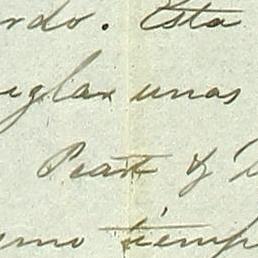 rdo. Esta
eglar unas
Peart &
smo tiemp